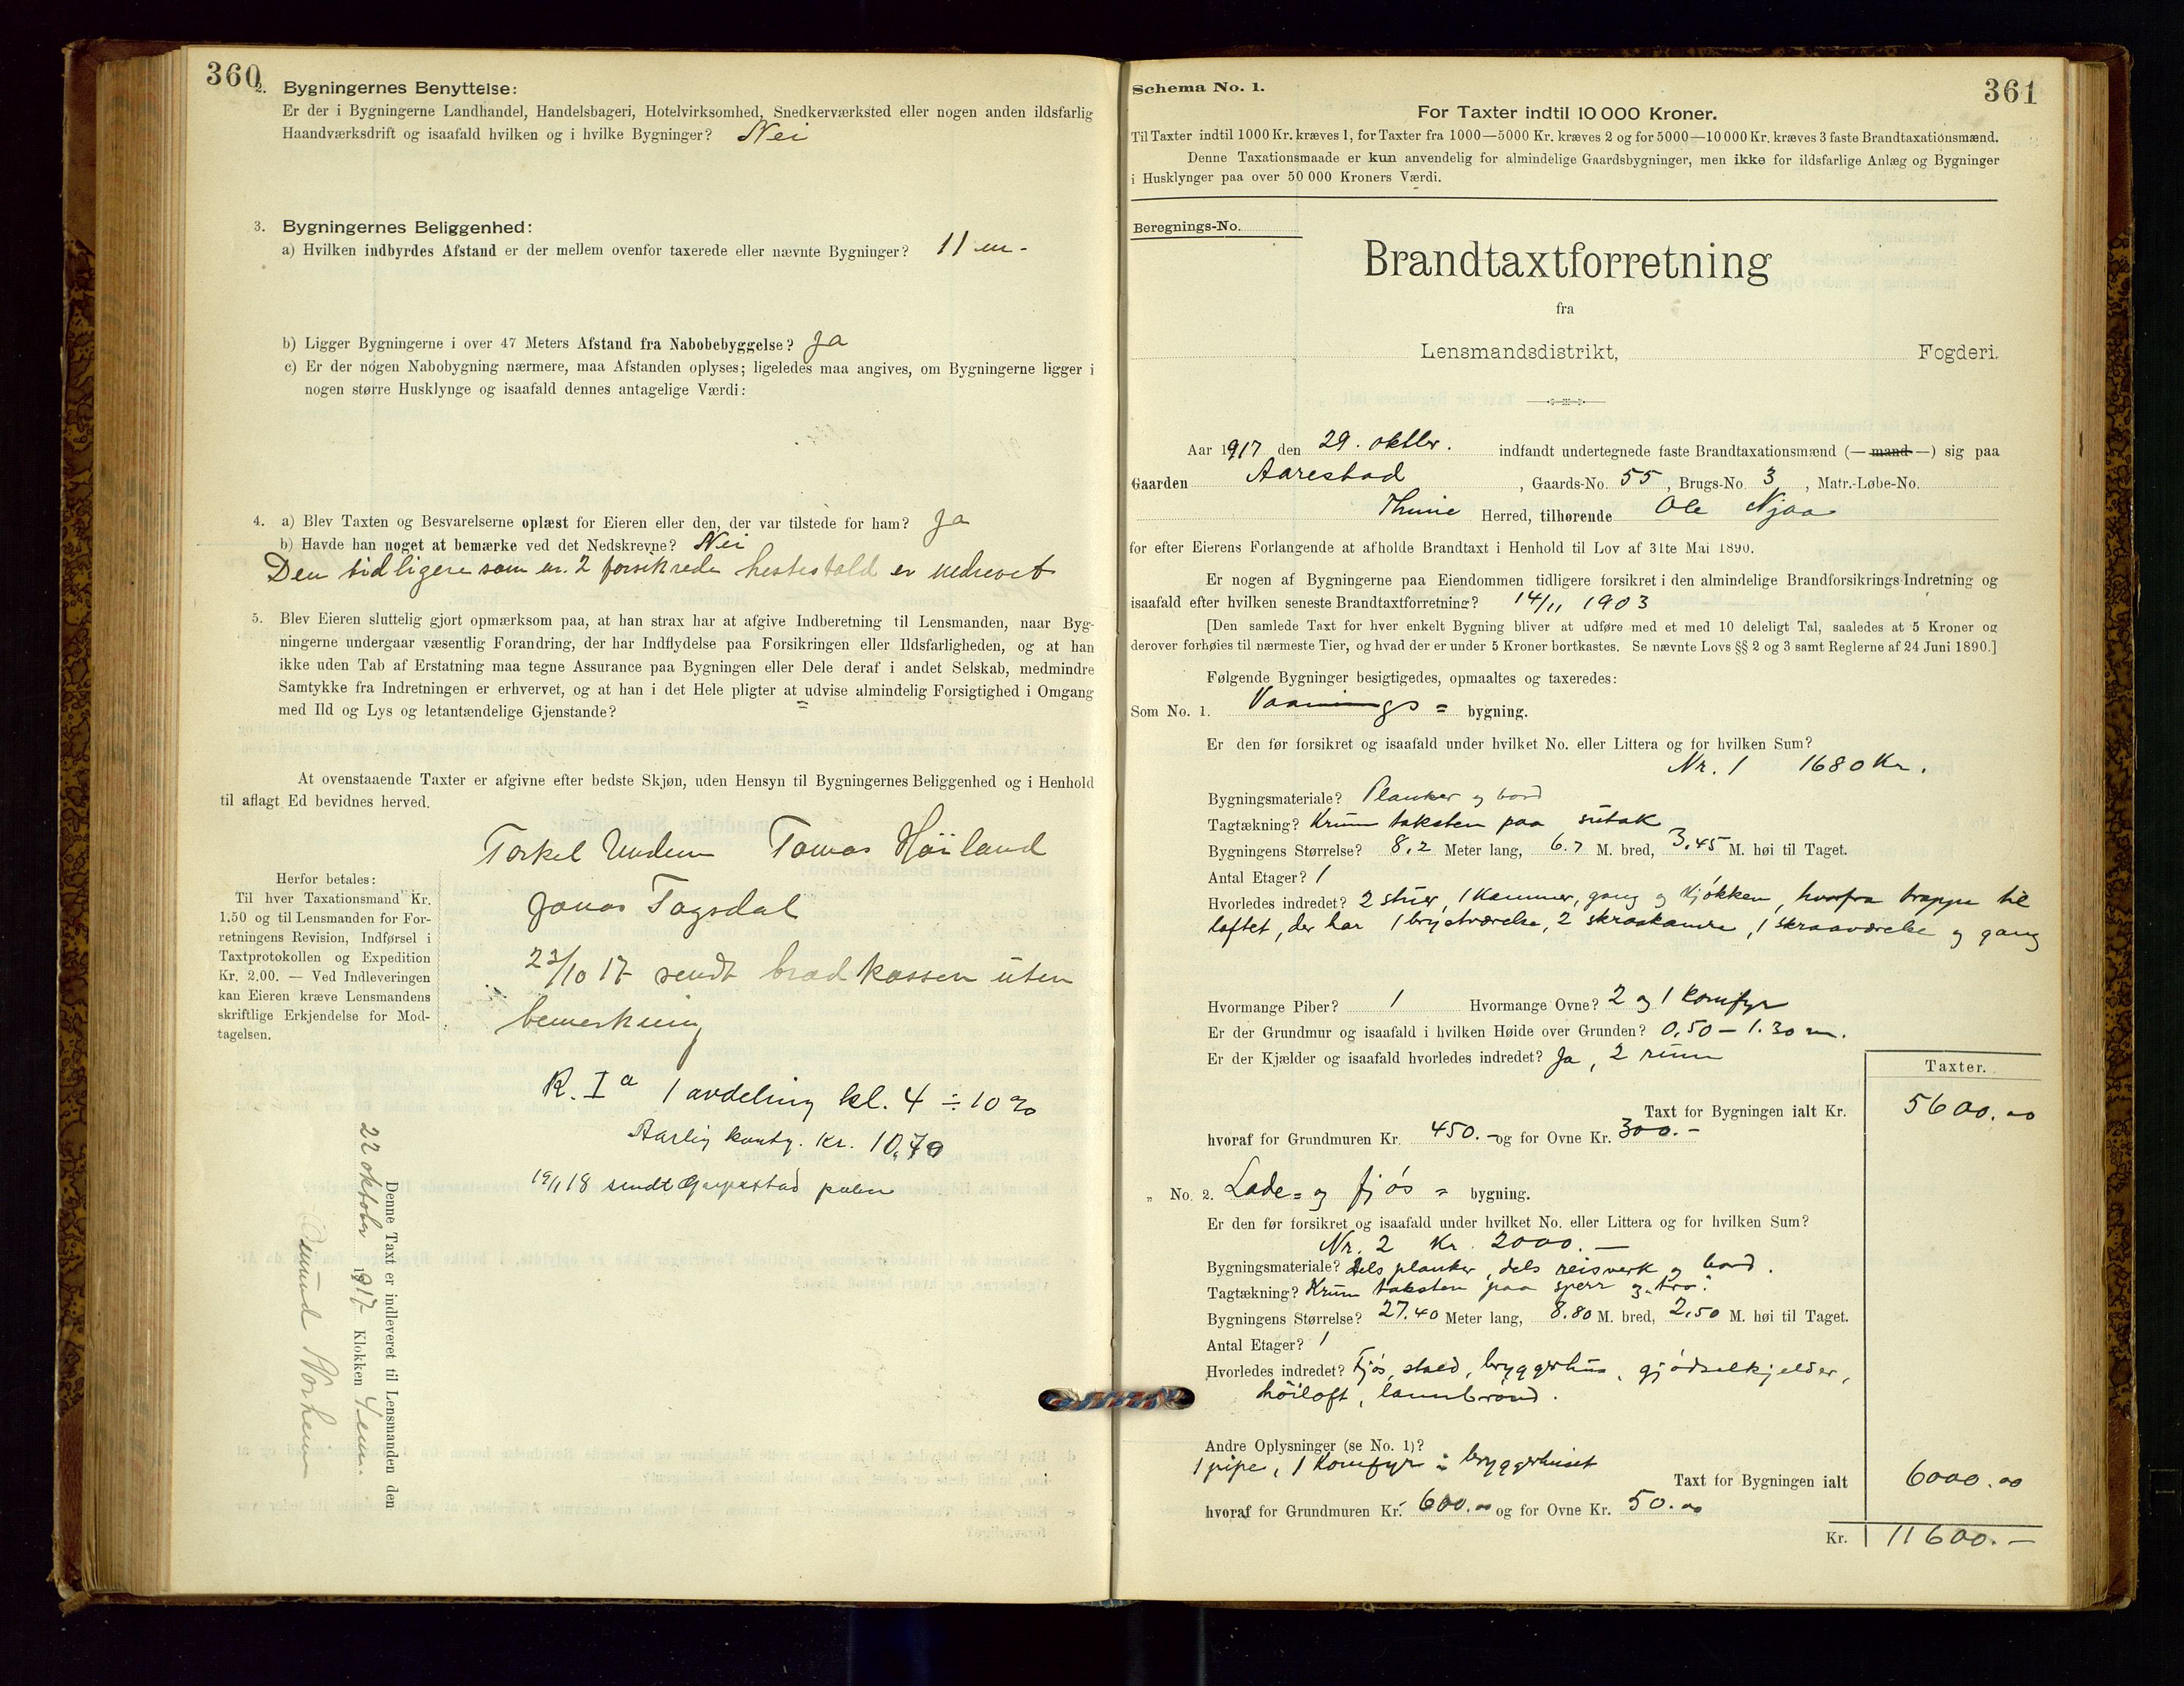 360
2. Bygningernes Benyttelse:
Er der i Bygningerne Landhandel, Handelsbageri, Hotelvirksomhed, Snedkerværksted eller nogen anden ildsfarlig
Haandværksdrift og isaafald hvilken og i hvilke Bygninger? Nei
3. Bygningernes Beliggenhed:
a) Hvilken indbyrdes Afstand er der mellem ovenfor taxerede eller nævnte Bygninger? 11 m -
b) Ligger Bygningerne i over 47 Meters Afstand fra Nabobebyggelse? Ja
c) Er der nogen Nabobygning nærmere, maa Afstanden oplyses; ligeledes maa angives, om Bygningerne ligger i
nogen større Husklynge og isaafald dennes antagelige Værdi:
4. a) Blev Taxten og Besvarelserne oplæst for Eieren eller den, der var tilstede for ham? Ja
b) Havde han noget at bemærke ved det Nedskrevne? Nei
Den tidligere som nr. 2 forsikrede hestestald er nedrevet
5. Blev Eieren sluttelig gjort opmærksom paa, at han strax har at afgive Indberetning til Lensmanden, naar Byg-
ningerne undergaar væsentlig Forandring, der har Indflydelse paa Forsikringen eller Ildsfarligheden, og at han
ikke uden Tab af Erstatning maa tegne Assurance paa Bygningen eller Dele deraf i andet Selskab, medmindre
Samtykke fra Indretningen er erhvervet, og at han i det Hele pligter at udvise almindelig Forsigtighed i Omgang
med Ild og Lys og letantændelige Gjenstande? =
At ovenstaaende Taxter er afgivne efter bedste Skjøn, uden Hensyn til Bygningernes Beliggenhed og i Henhold
til aflagt Ed bevidnes herved.
Torkel Undem Tomas Höiland
Jonas Tagsdal
Herfor betales:
Til hver Taxationsmand Kr.
1.50 og til Lensmanden for For-
retningens Revision, Indførsel i
Taxtprotokollen og Expedition
Kr. 2.00. — Ved Indleveringen
kan Eieren kræve Lensmandens
skriftlige Erkjendelse for Mod-
tagelsen.
23/10 17 sendt bradkassen uten
bemerkning
R. I a 1 avdeling kl. 4 ÷ 10 %
Aarlig konty. Kr. 10,70
19/1 18 sendt polise
Denne Taxt er indleveret til Lensmanden den
22 oktober 1917 Klokken 4 em.
361
Schema No. 1.
For Taxter indtil 10 000 Kroner.
Til Taxter indtil 1000 Kr. kræves 1, for Taxter fra 1000—5000 Kr. kræves 2 og for 5000—10 000 Kr. kræves 3 faste Brandtaxationsmænd.
Denne Taxationsmaade er kun anvendelig for almindelige Gaardsbygninger, men ikke for ildsfarlige Anlæg og Bygninger
i Husklynger paa over 50 000 Kroners Værdi.
Beregnings-No.
Brandtaxtforretning
fra
Lensmandsdistrikt, Fogderi.
Aar 1917 den 29. oktbr. indfandt undertegnede faste Brandtaxationsmænd (— mand —) sig paa
Gaarden Aarestad, Gaards-No. 55, Brugs-No. 3, Matr.-Løbe-No.
Thime Herred, tilhørende Ole Njaa
for efter Eierens Forlangende at afholde Brandtaxt i Henhold til Lov af 31te Mai 1890.
Er nogen af Bygningerne paa Eiendommen tidligere forsikret i den almindelige Brandforsikrings-Indretning og
isaafald efter hvilken seneste Brandtaxtforretning? 14/11 1903
[Den samlede Taxt for hver enkelt Bygning bliver at udføre med et med 10 deleligt Tal, saaledes at 5 Kroner og
derover forhøies til nærmeste Tier, og hvad der er under 5 Kroner bortkastes. Se nævnte Lovs §§ 2 og 3 samt Reglerne af 24 Juni 1890.]
Følgende Bygninger besigtigedes, opmaaltes og taxeredes:
Som No. 1. Vaanings = bygning.
Er den før forsikret og isaafald under hvilket No. eller Littera og for hvilken Sum?
Nr. 1 1680 Kr.
Bygningsmateriale? Planker og bord
Tagtækning? Krum taksten paa sutak
Bygningens Størrelse? 8,2 Meter lang, 6.7 M. bred, 3.45 M. høi til Taget.
Antal Etager? 1
Hvorledes indredet? 2 stuer, 1 kammer, gang og kjøkken, hvorfra trappe til
loftet, der har 1 brystværelse, 2 skraakamre, 1 skraaværelse og gang
Hvormange Piber? 1 Hvormange Ovne? 2 og 1 komfyr
Er der Grundmur og isaafald i hvilken Høide over Grunden? 0,50 – 1.30 m.
Er der Kjælder og isaafald hvorledes indredet? Ja, 2 rum
Taxter.
Taxt for Bygningen ialt Kr. 5600.00
hvoraf for Grundmuren Kr. 450.- og for Ovne Kr. 300.-
„ No. 2. Lade = og fjøs = bygning.
Er den før forsikret og isaafald under hvilket No. eller Littera og for hvilken Sum?
Nr. 2 Kr. 2000.—
Bygningsmateriale? dels planker, dels reisverk og bord.
Tagtækning? Krum taksten paa sperr og tro.
Bygningens Størrelse? 27.40 Meter lang, 8.80 M. bred, 2,50 M. høi til Taget.
Antal Etager? 1
Hvorledes indredet? Fjøs, stald, bryggerhus, gjødselkjelder,
höiloft, lannbrönd.
Andre Oplysninger (se No. 1)?
1 pipe, 1 komfyr i bryggerhuset
Taxt for Bygningen ialt 6000.00
hvoraf for Grundmuren Kr. 600.00 og for Ovne Kr. 50.00
Kr. 11600.—